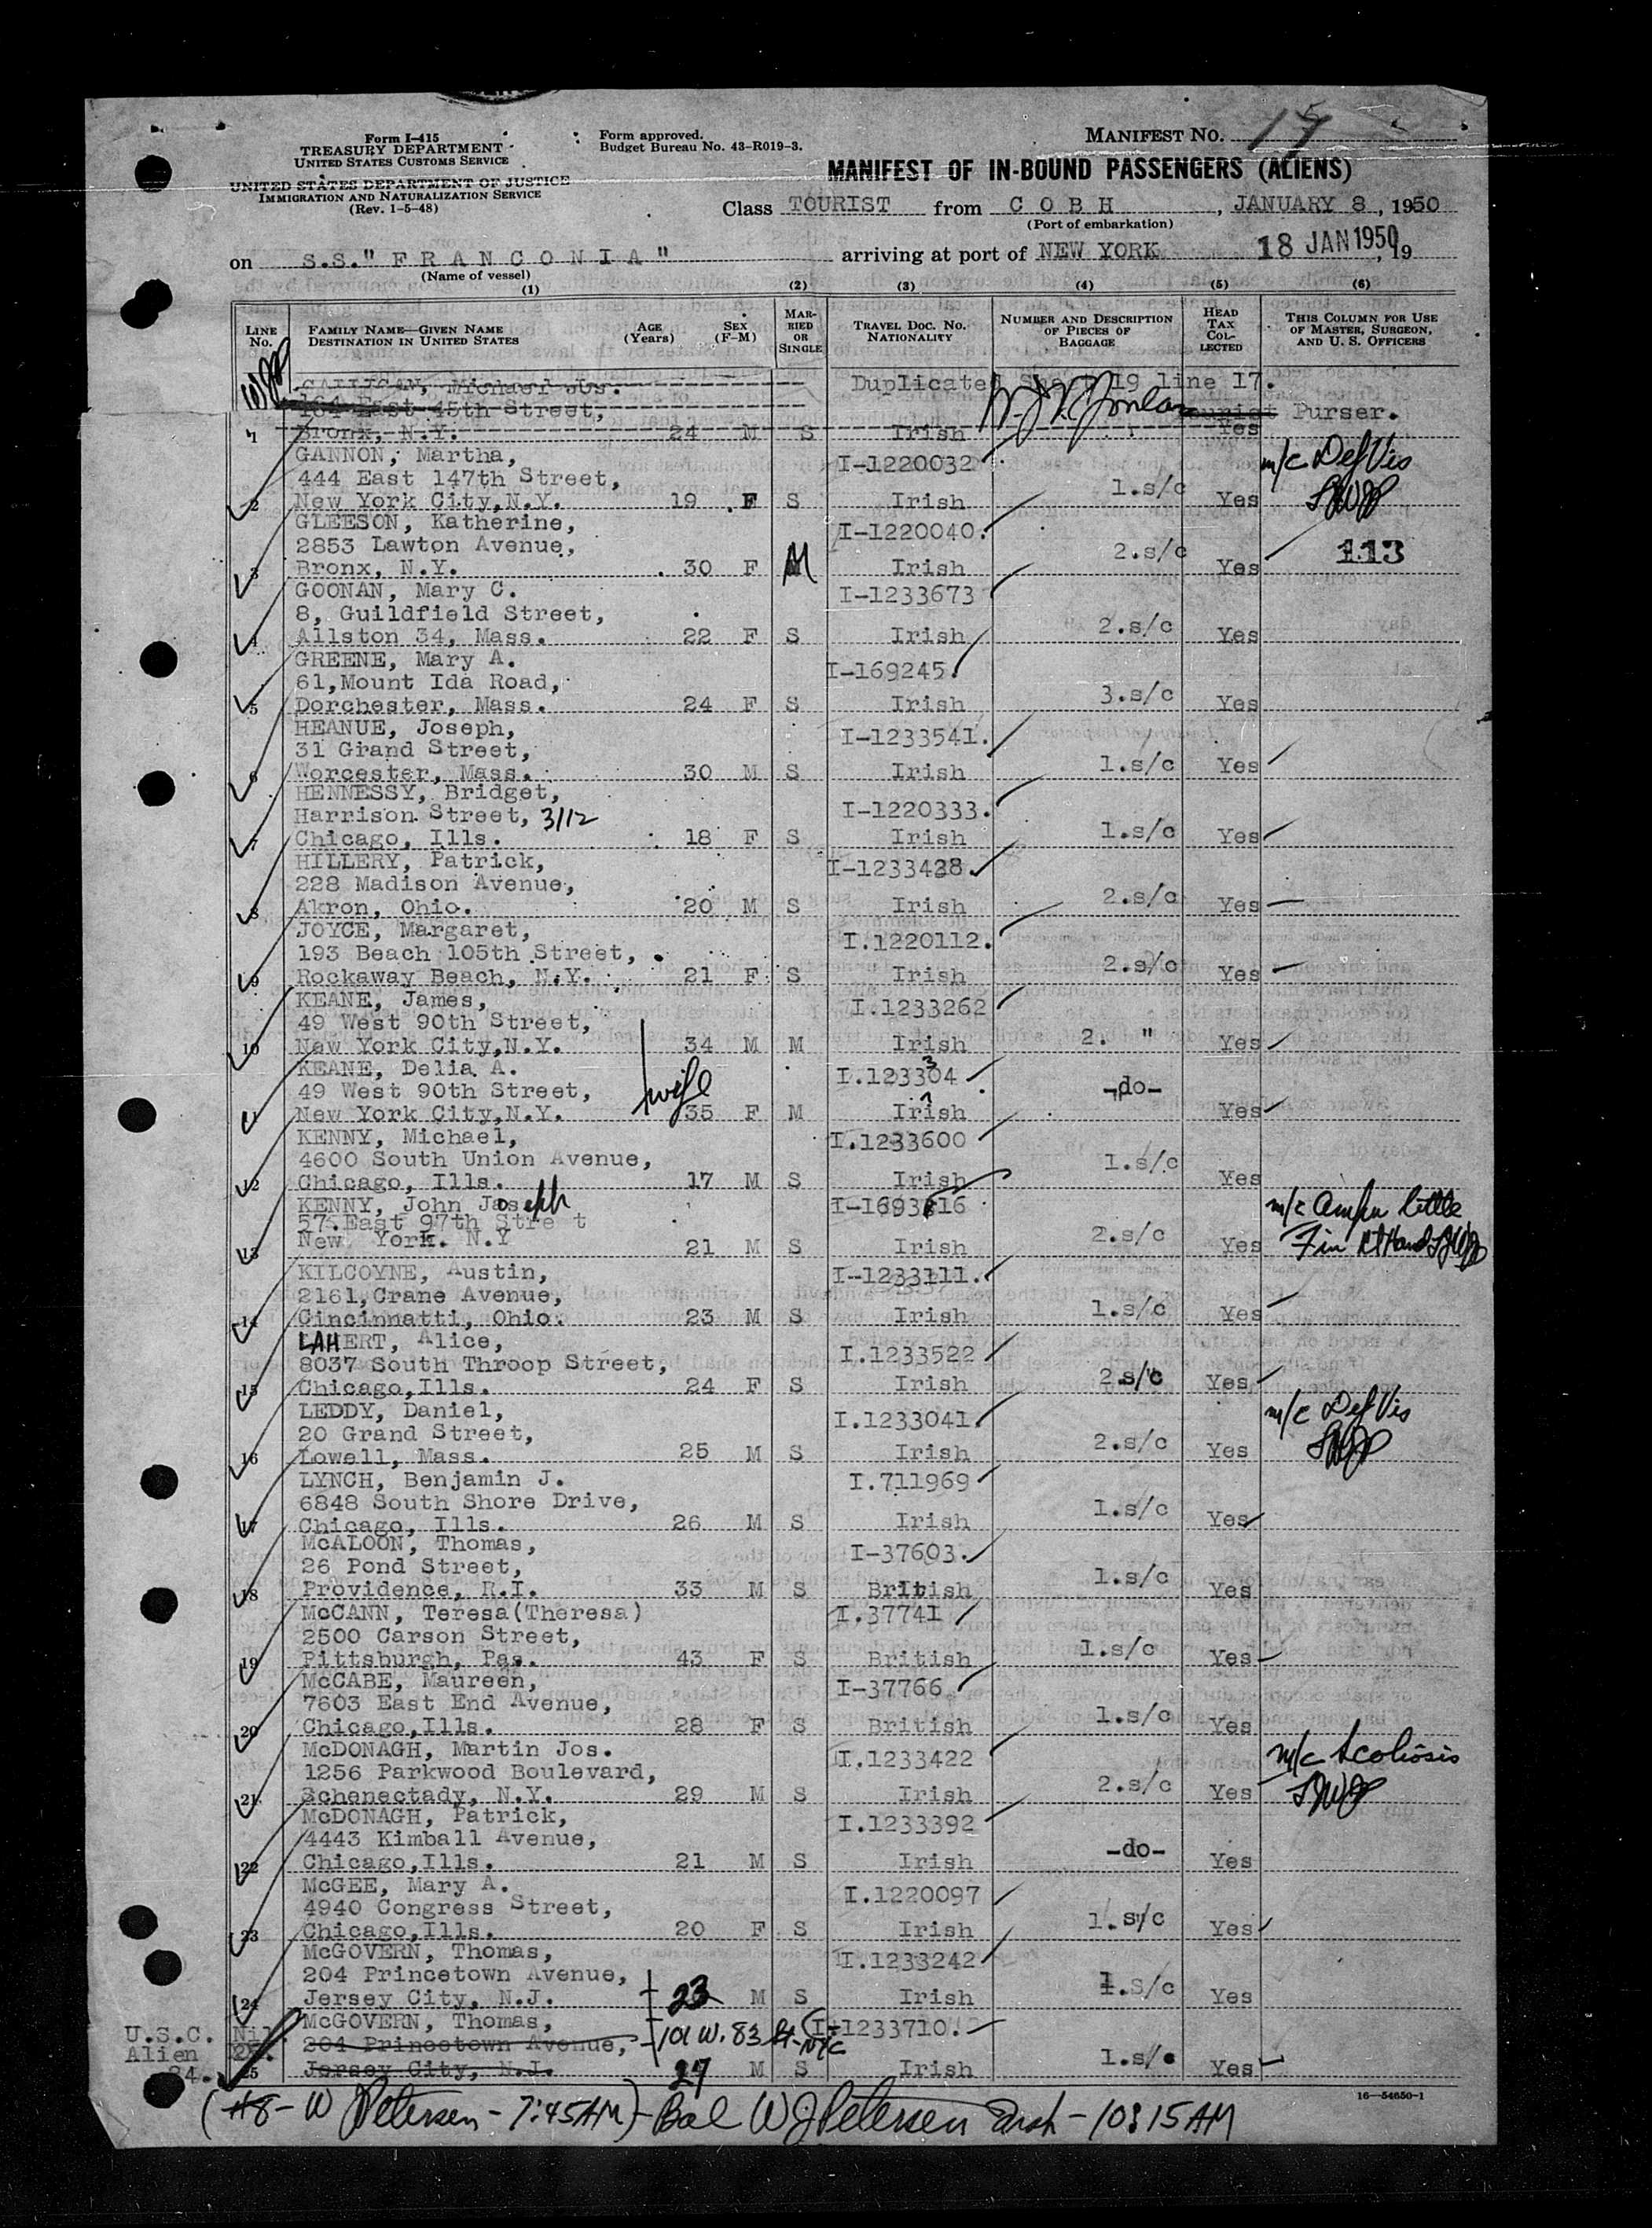 Form I-415
TREASURY DEPARTMENT
UNITED STATES CUSTOMS SERVICE
UNITED STATES DEPARTMENT OF JUSTICE
IMMIGRATION AND NATURALIZATION SERVICE
(Rev. 1-5-48)
Form approved.
Budget Bureau No. 43-R019-3.
MANIFEST NO.
MANIFEST OF IN-BOUND PASSENGERS (ALIENS)
Class TOURIST from COBH, JANUARY 8, 1950
(Port of embarkation)
on S.S."FRANCONIA" arriving at port of NEW YORK 18 JAN 1950, 19
(Name of vessel)
(1) (2) (3) (4) (5) (6)
LINE No. FAMILY NAME—GIVEN NAME DESTINATION IN UNITED STATES AGE (Years) SEX (F-M) MARRIED OR SINGLE TRAVEL DOC. NO. NATIONALITY NUMBER AND DESCRIPTION OF PIECES OF BAGGAGE HEAD TAX COLLECTED THIS COLUMN FOR USE OF MASTER, SURGEON, AND U. S. OFFICERS
Michael Jos. Duplicated Sheet 19 line 17.
164 East 45th Street, Purser.
1 Bronx, N.Y. 24 M S Irish Yes
GANNON, Martha, I-1220032 m/c Def Vis
444 East 147th Street,
2 New York City,N.Y. 19 F S Irish 1.s/c Yes
GLEESON, Katherine, I-1220040.
2853 Lawton Avenue, 113
3 Bronx, N.Y. 30 F M Irish 2.s/c Yes
GOONAN, Mary C. I-1233673
8, Guildfield Street,
4 Allston 34, Mass. 22 F S Irish 2.s/c Yes
GREENE, Mary A. I-169245.
61,Mount Ida Road,
5 Dorchester, Mass. 24 F S Irish 3.s/c Yes
HEANUE, Joseph, I-1233541.
31 Grand Street,
6 Worcester, Mass. 30 M S Irish 1.s/c Yes
HENNESSY, Bridget, I-1220333.
Harrison Street, 3112
7 Chicago, Ills. 18 F S Irish 1.s/c Yes
HILLERY, Patrick, I-1233428.
228 Madison Avenue,
8 Akron, Ohio. 20 M S Irish 2.s/c Yes
JOYCE, Margaret, I.1220112.
193 Beach 105th Street,
9 Rockaway Beach, N.Y. 21 F S Irish 2.s/c Yes
KEANE, James, I.1233262
49 West 90th Street,
10 New York City,N.Y. 34 M M Irish 2. " Yes
KEANE, Delia A. I.123304 3
49 West 90th Street, wife
11 New York City,N.Y. 35 F M Irish -do- Yes
KENNY, Michael, I.1233600
4600 South Union Avenue,
12 Chicago, Ills. 17 M S Irish 1.s/c Yes
KENNY, John Joseph m/c Ampu little
57.East 97th Stre t Fin Rt Hand
13 New York. N.Y 21 M S Irish 2.s/c Yes
KILCOYNE, Austin, I-1233111.
2161,Crane Avenue,
14 Cincinnatti, Ohio. 23 M S Irish 1.s/c Yes
LAHERT, Alice, I.1233522
8037 South Throop Street,
15 Chicago,Ills. 24 F S Irish 2.s/c Yes
LEDDY, Daniel, I.1233041. m/c Def Vis
20 Grand Street,
16 Lowell, Mass. 25 M S Irish 2.s/c Yes
LYNCH, Benjamin J. I.711969
6848 South Shore Drive,
17 Chicago, Ills. 26 M S Irish 1.s/c Yes
McALOON, Thomas, I-37603.
26 Pond Street,
18 Providence, R.I. 33 M S British 1.s/c Yes
McCANN, Teresa(Theresa) I.37741
2500 Carson Street,
19 Pittsburgh, Pas. 43 F S British 1.s/c Yes
McCABE, Maureen, I-37766
7603 East End Avenue,
20 Chicago,Ills. 28 F S British 1.s/c Yes
McDONAGH, Martin Jos. I.1233422 m/c Scoliosis
1256 Parkwood Boulevard,
21 Schenectady, N.Y. 29 M S Irish 2.s/c Yes
McDONAGH, Patrick, I.1233392
4443 Kimball Avenue,
22 Chicago,Ills. 21 M S Irish -do- Yes
McGEE, Mary A. I.1220097
4940 Congress Street,
23 Chicago,Ills. 20 F S Irish 1.s/c Yes
McGOVERN, Thomas, I.1233242
204 Princetown Avenue,
24 Jersey City, N.J. 23 M S Irish 1.s/c Yes
U.S.C. Nil McGOVERN, Thomas, I-1233710.
Alien 204 Princetown Avenue, 101 W. 83 St. NYC
24. 25 Jersey City, N.J. 27 M S Irish 1.s/c Yes
16—54650-1
(#8 - W J Petersen - 7:45AM) - Bal W J Petersen - 10:15AM